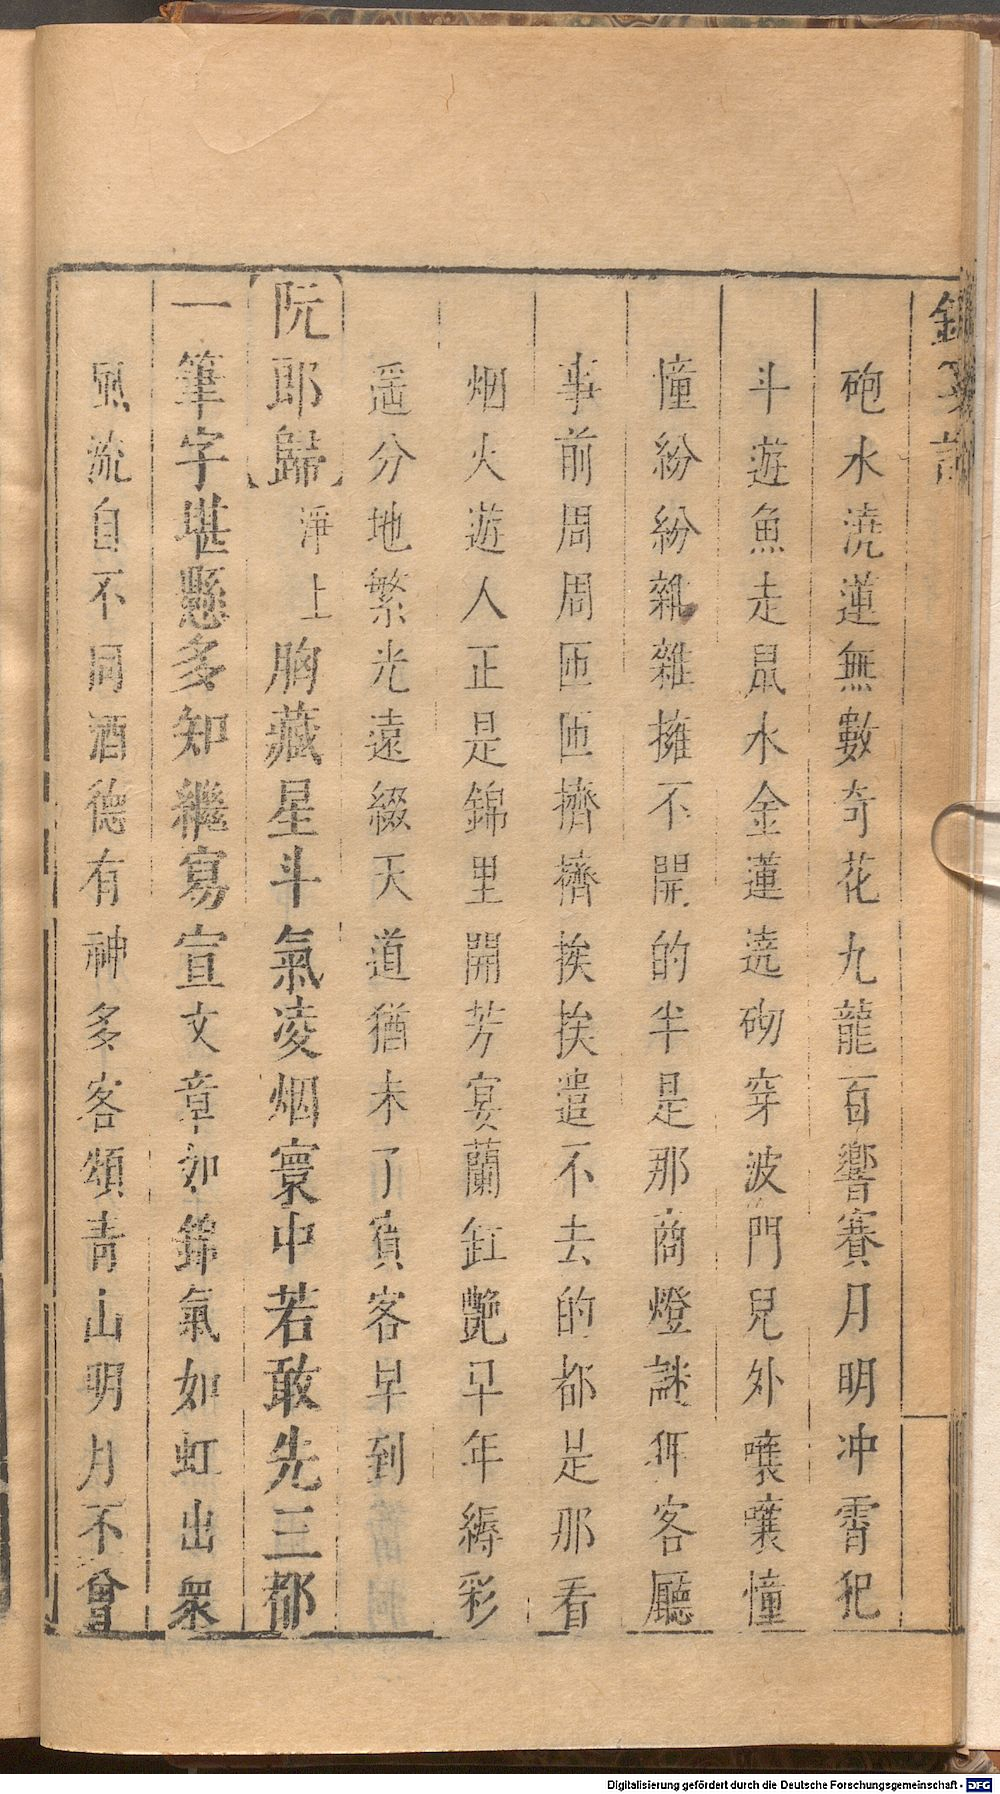 砲水澆蓮無數奇花九龍百響賽月明冲霄犯
斗遊魚走鼠水金蓮遶砌穿波門兒外嚷嚷憧
憧紛紛雜雜擁不開的半是那商燈謎客廳
事前周周匝匝擠擠挨挨遣不去的都是那看
烟火遊人正是錦里開芳宴蘭缸艷早年縟彩
遥分地繁光遠綴天道猶未了賓客早到
阮郎歸 淨上 胸藏星斗氣凌烟寰中若敢先三都
一筆字堪懸多知繼寫宣文章如錦氣如虹出衆
風流自不同酒德有神多客頌青山明月不曾
Digitalisierung gefördert durch die Deutsche Forschungsgemeinschaft - DFG